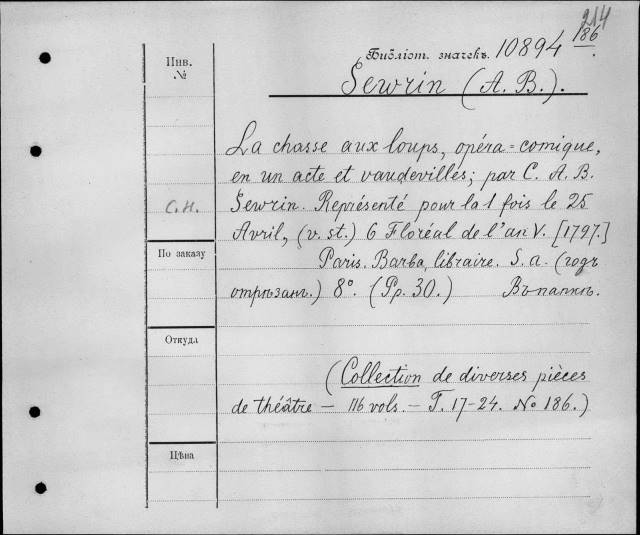 214
Инв. №
Библіот. значекъ 10894 186.
Sewrin (A. B.).
La chasse aux loups, opéra-comique,
en un acte et vaudevilles; par C. A. B.
С.Н. Sewrin. Représenté pour la 1 fois le 25
Avril, (v. st.) 6 Floréal de l'an V. [1797.]
По заказу
Paris. Barba, libraire. S. a. (годъ
отрѣзанъ.) 8°. (Pp. 30.) Въ папкѣ.
Откуда
(Collection de diverses pièces
de théâtre — 116 vols. — T. 17-24. No 186.)
Цѣна